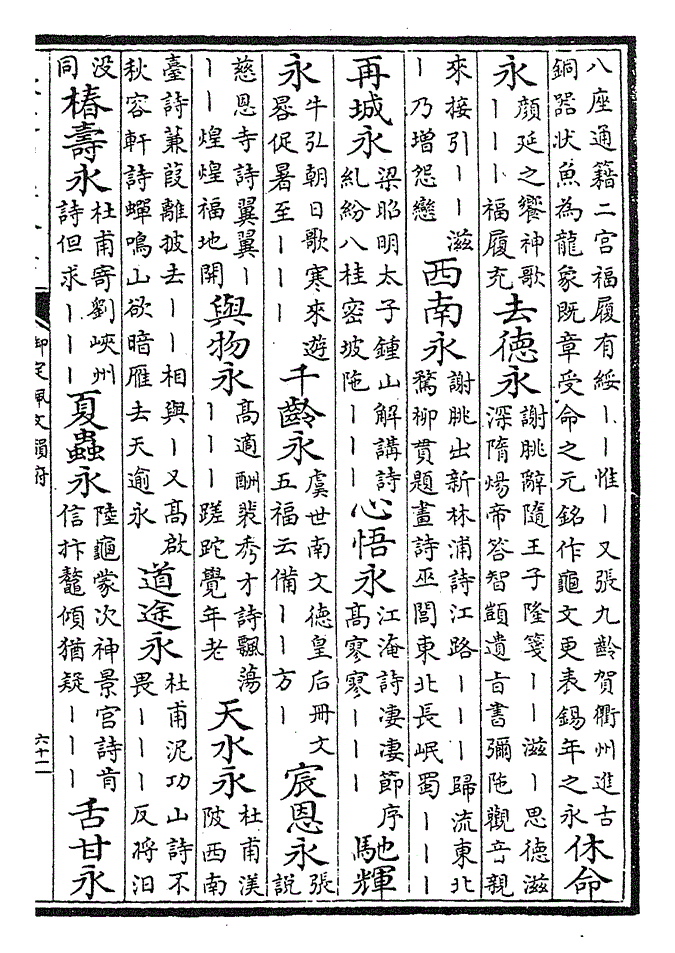 八座通籍二宮福履有綏｜｜惟｜又張九齡賀衢州進古
銅器狀魚為龍象既章受命之元銘作龜文更表錫年之永
休命
永
顔延之饗神歌
｜｜｜福履充
去德永
謝朓辭隨王子隆箋｜｜滋｜思德滋
深隋煬帝答智顗遺旨書彌陁觀音親
來接引｜｜滋
｜乃增怨戀
西南永
謝朓出新林浦詩江路｜｜｜歸流東北
鶩柳貫題畫詩巫閭東北長岷蜀｜｜｜
再城永
梁昭明太子鍾山解講詩
糺紛八桂密坡陁｜｜｜
心悟永
江淹詩凄凄節序
高寥寥｜｜｜
馳輝
永
牛弘朝日歌寒來遊
晷促暑至｜｜｜
千齡永
虞世南文德皇后冊文
五福云備｜｜方｜
宸恩永
張
說
慈恩寺詩翼翼｜
｜｜煌煌福地開
與物永
高適酬裴秀才詩飄蕩
｜｜｜蹉跎覺年老
天水永
杜甫渼
陂西南
臺詩蒹葭離披去｜｜相與｜又高啟
秋容軒詩蟬鳴山欲暗雁去天逾永
道途永
杜甫泥功山詩不
畏｜｜｜反將汩
没
同
椿壽永
杜甫寄劉峽州
詩但求｜｜｜
夏蟲永
陸龜蒙次神景宮詩肯
信抃鼇傾猶疑｜｜｜
舌甘永
御定佩文韻府
六十二